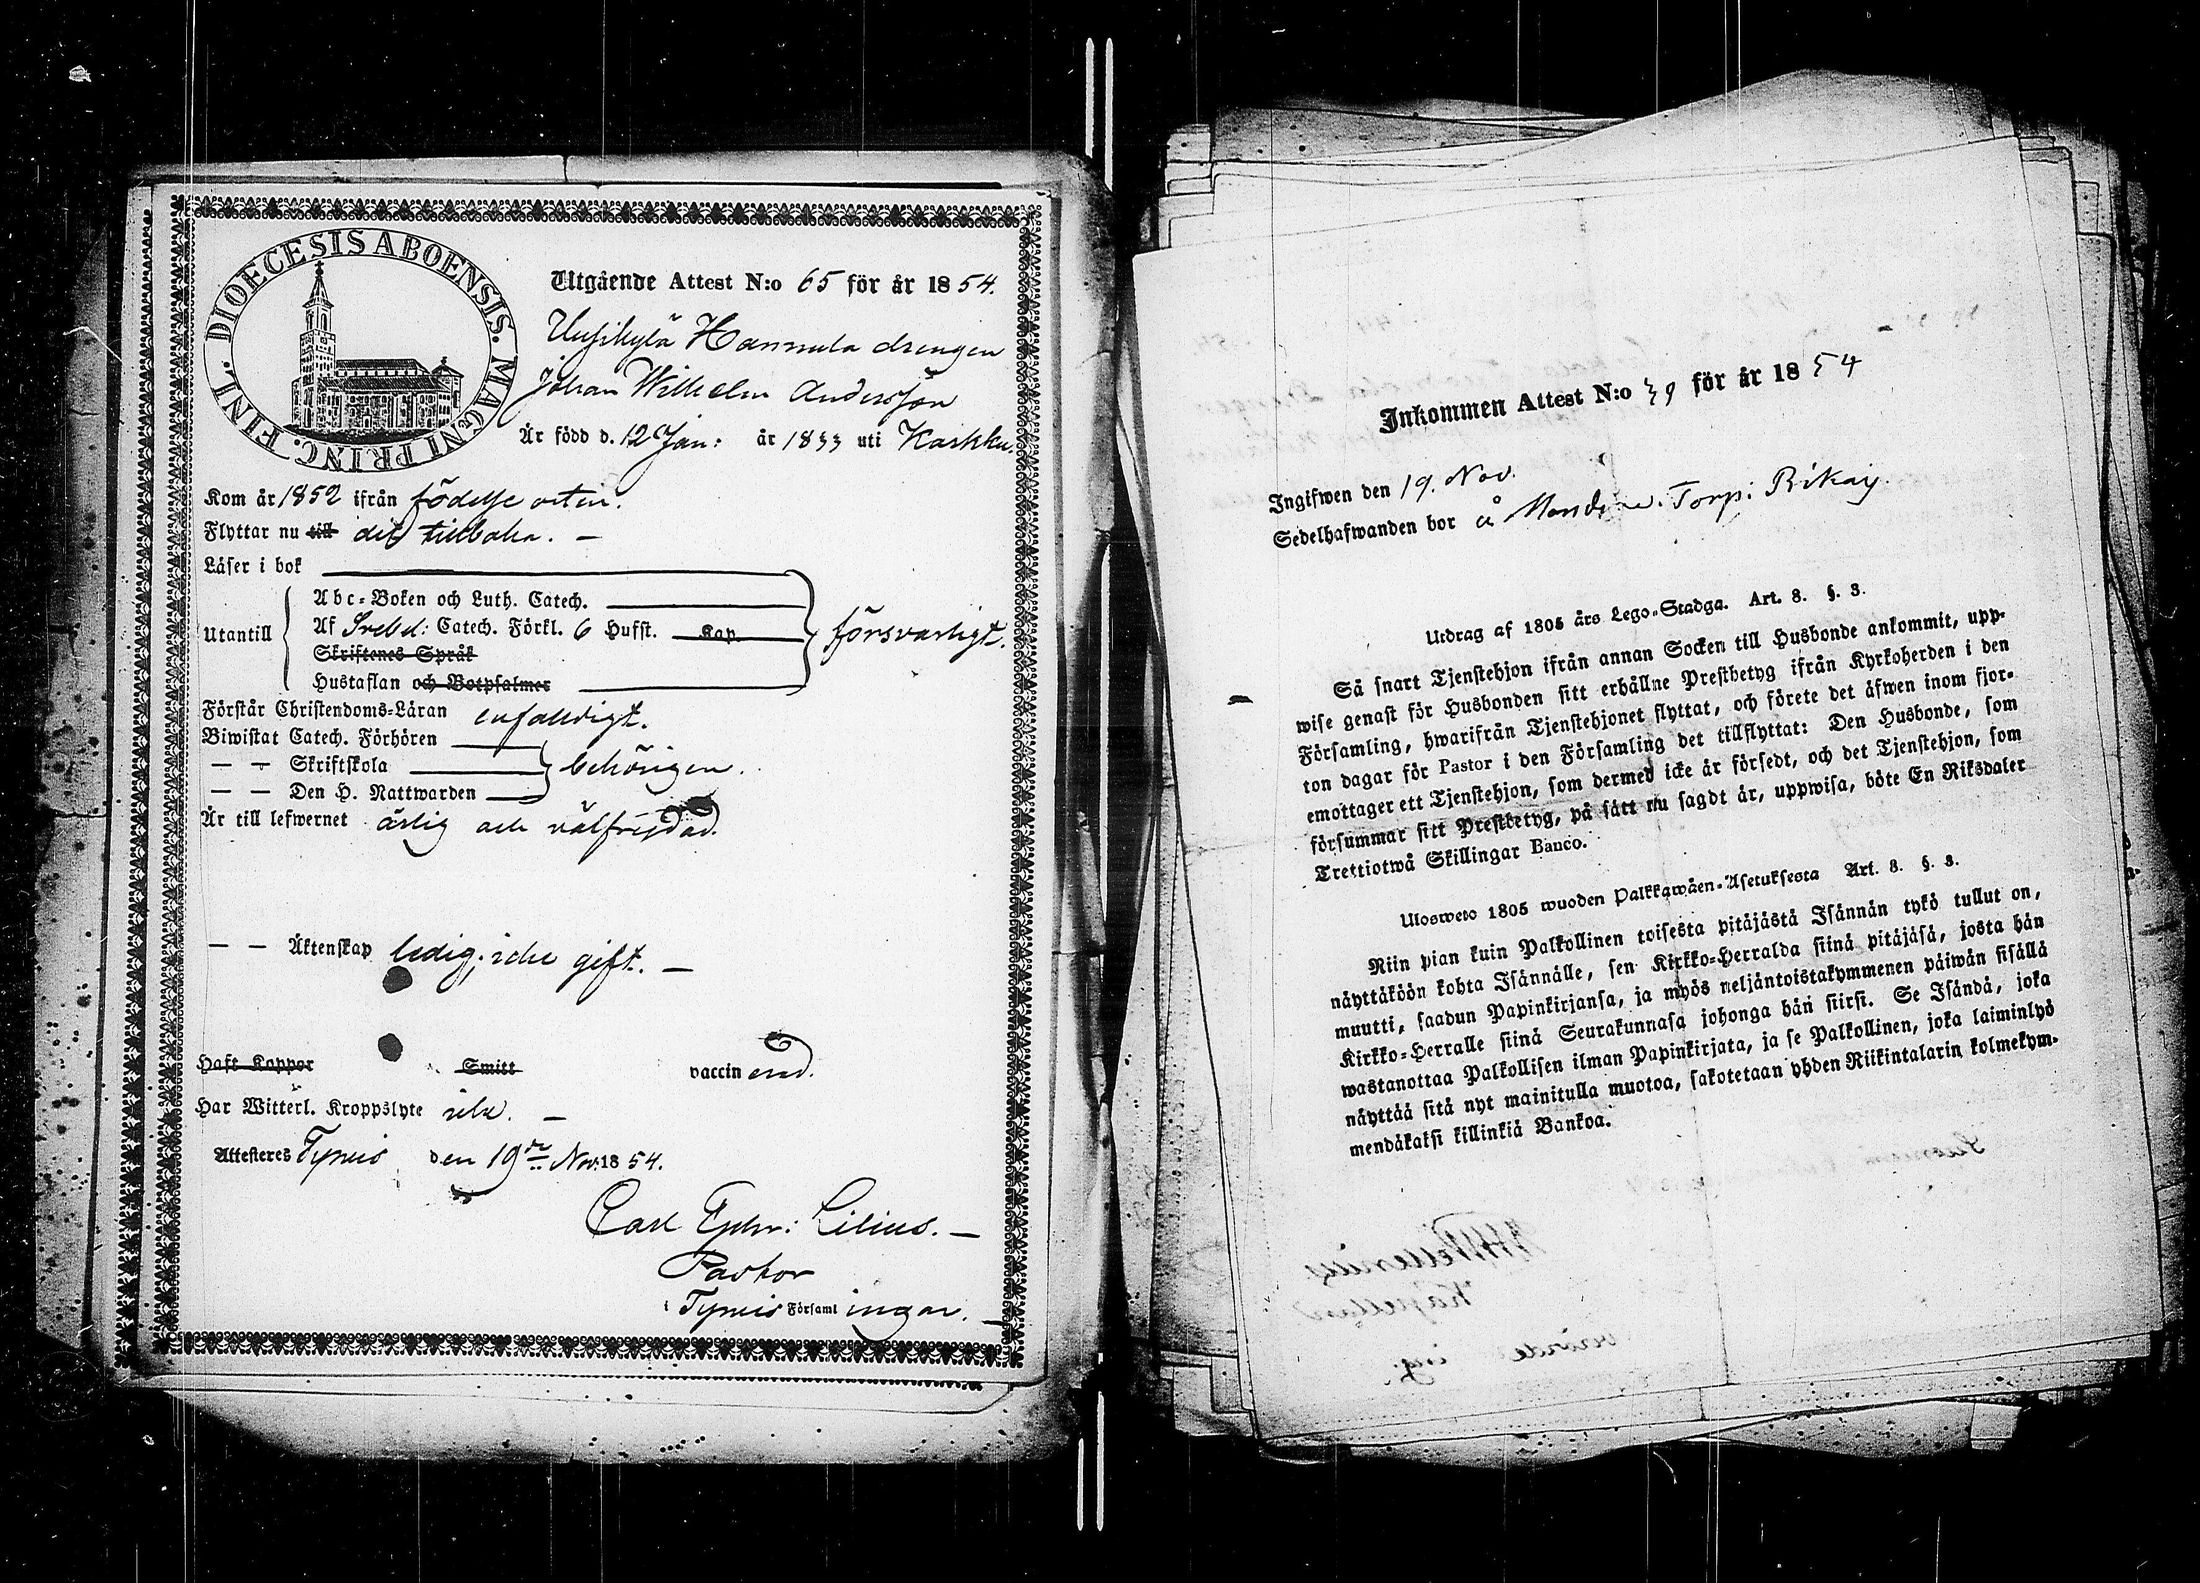 DIOECESIS ABOENSIS. MAGNI PRINC. FINL.
Utgående Attest N:o 65 för år 1854.
Uusikylä Hannula drengen
Johan Wilhelm Andersson
Är född d. 12 Jan: år 1833 uti Karkku.
Kom år 1852 ifrån födelse orten.
Flyttar nu till dit tillbaka. —
Läser i bok
Abc-Boken och Luth. Catech.
Utantill Af Svebel: Catech. Förkl. 6 Hufst. Kap. försvarligt.
Skriftenes Språk
Hustaflan och Botpsalmer
Förstår Christendoms-Läran enfaldigt.
Biwistat Catech. Förhören
— — Skriftskola behörigen.
— — Den H. Nattwarden
Är till lefwernet ärlig och välfrejdad.
— — Äktenskap ledig; icke gift. —
Haft Koppor Smitt vaccinerad.
Har Witterl. Kroppslyte icke. —
Attesteres Tyrvis den 19de Nov. 1854.
Carl Ephr: Lilius. —
Pastor
i Tyrvis Församlingar. —
Inkommen Attest N:o 39 för år 1854
Ingifwen den 19. Nov.
Sedelhafwanden bor å Torp:
Utdrag af 1805 års Lego-Stadga. Art. 8. §. 3.
Så snart Tjenstehjon ifrån annan Socken till Husbonde ankommit, upp-
wise genast för Husbonden sitt erhållne Prestbetyg ifrån Kyrkoherden i den
Församling, hwarifrån Tjenstehjonet flyttat, och förete det äfwen inom fjor-
ton dagar för Pastor i den Församling det tillflyttat: Den Husbonde, som
emottager ett Tjenstehjon, som dermed icke är försedt, och det Tjenstehjon, som
försummar sitt Prestbetyg, på sätt nu sagdt är, uppwisa, böte En Riksdaler
Trettiotwå Skillingar Banco.
Ulosweto 1805 wuoden Palkkawäen-Asetuksesta Art. 8. §. 3.
Niin pian kuin Palkollinen toisesta pitäjästä Isännän tykö tullut on,
näyttäköön kohta Isännälle, sen Kirkko-Herralda siinä pitäjäsä, josta hän
muutti, saadun Papinkirjansa, ja myös neljäntoistakymmenen päiwän sisällä
Kirkko-Herralle siinä Seurakunnasa johonga hän siirsi. Se Isändä, joka
wastanottaa Palkollisen ilman Papinkirjata, ja se Palkollinen, joka laiminlyö
näyttää sitä nyt mainitulla muotoa, sakotetaan yhden Riikintalarin kolmekym-
mendäkaksi killinkiä Bankoa.